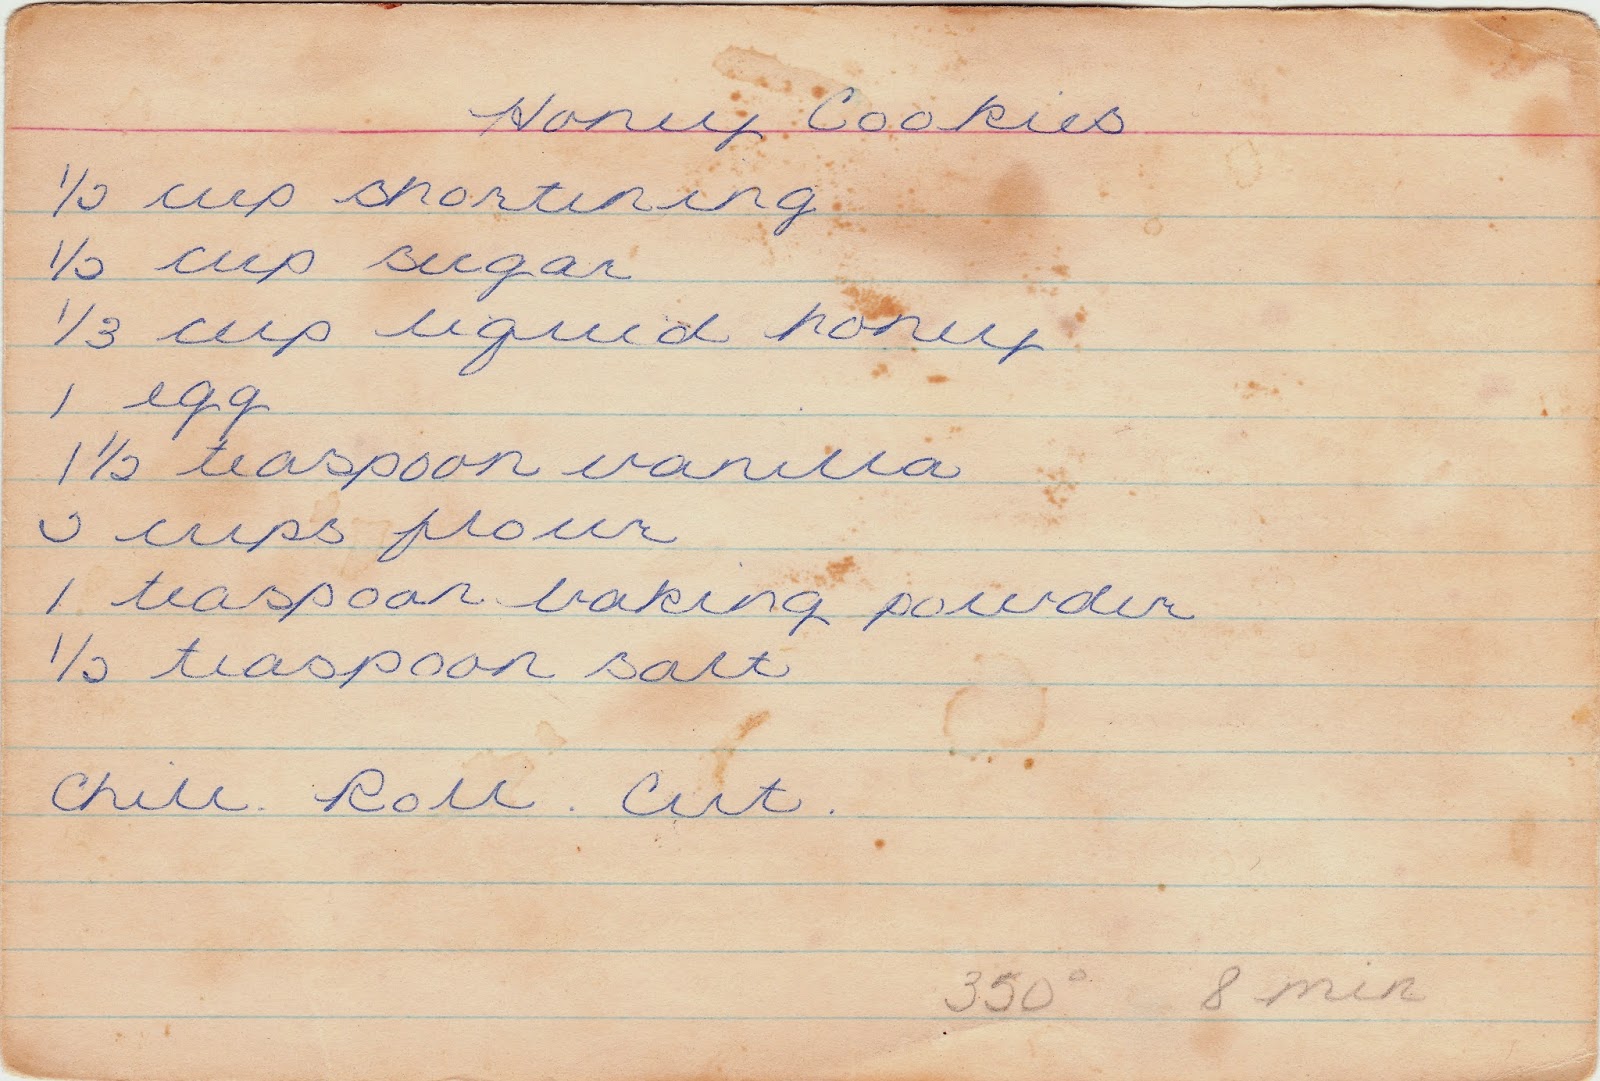 Honey Cookies
1/2 cup shortening
1/2 cup sugar
1/3 cup liquid honey
1 egg
1 1/2 teaspoon vanilla
2 cups flour
1 teaspoon baking powder
1/2 teaspoon salt
Chill. Roll. Cut.
350° 8 min